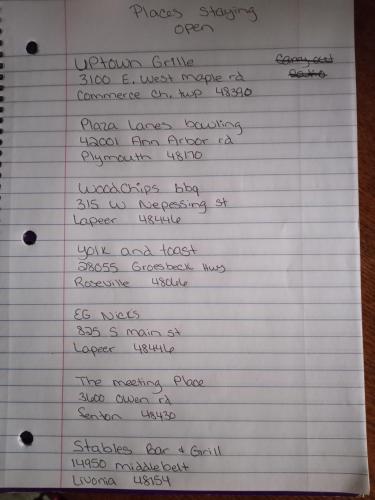 Places Staying
open
Uptown Grille
3100 E. West maple rd
Commerce Ch. twp 48390
Plaza Lanes bowling
42001 Ann Arbor rd
Plymouth 48170
WoodChips bbq
315 W Nepessing st
Lapeer 48446
yolk and toast
28055 Groesbeck Hwy
Roseville 48066
EG Nicks
825 S main st
Lapeer 48446
The meeting Place
3600 Owen rd
Fenton 48430
Stables Bar & Grill
14950 middlebelt
Livonia 48154